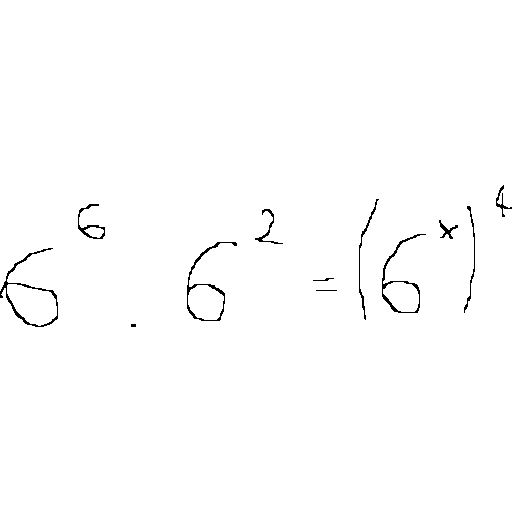 6⁶ . 6² = (6ˣ)⁴